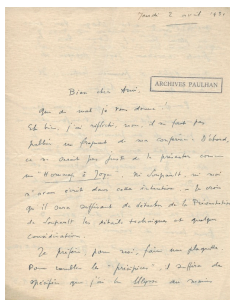 Jeudi 2 avril 1931
Bien cher Ami,
ARCHIVES PAULHAN
Que de mal je vous donne !
Eh bien, j'ai réfléchi, non, il ne faut pas
publier un fragment de ma conférence. D'abord,
ce ne serait pas juste de le présenter comme
un "Hommage à Joyce". Ni Soupault, ni moi
n'avons écrit dans cette intention. Je crois
qu'il sera suffisant de détacher de la Présentation
de Soupault les détails techniques et quelques
considérations
Je préfère, pour moi, faire une plaquette
Pour combler le "principes", il suffira de
spécifier que j'ai lu Ulysses au moins